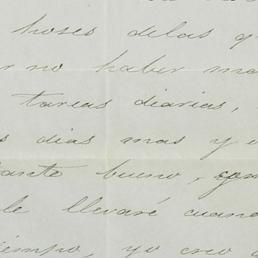 hoses delas q
r no haber ma
tareas diarias,
s dias mas y
tante bueno,
le llevaré cuand
iempo, yo creo